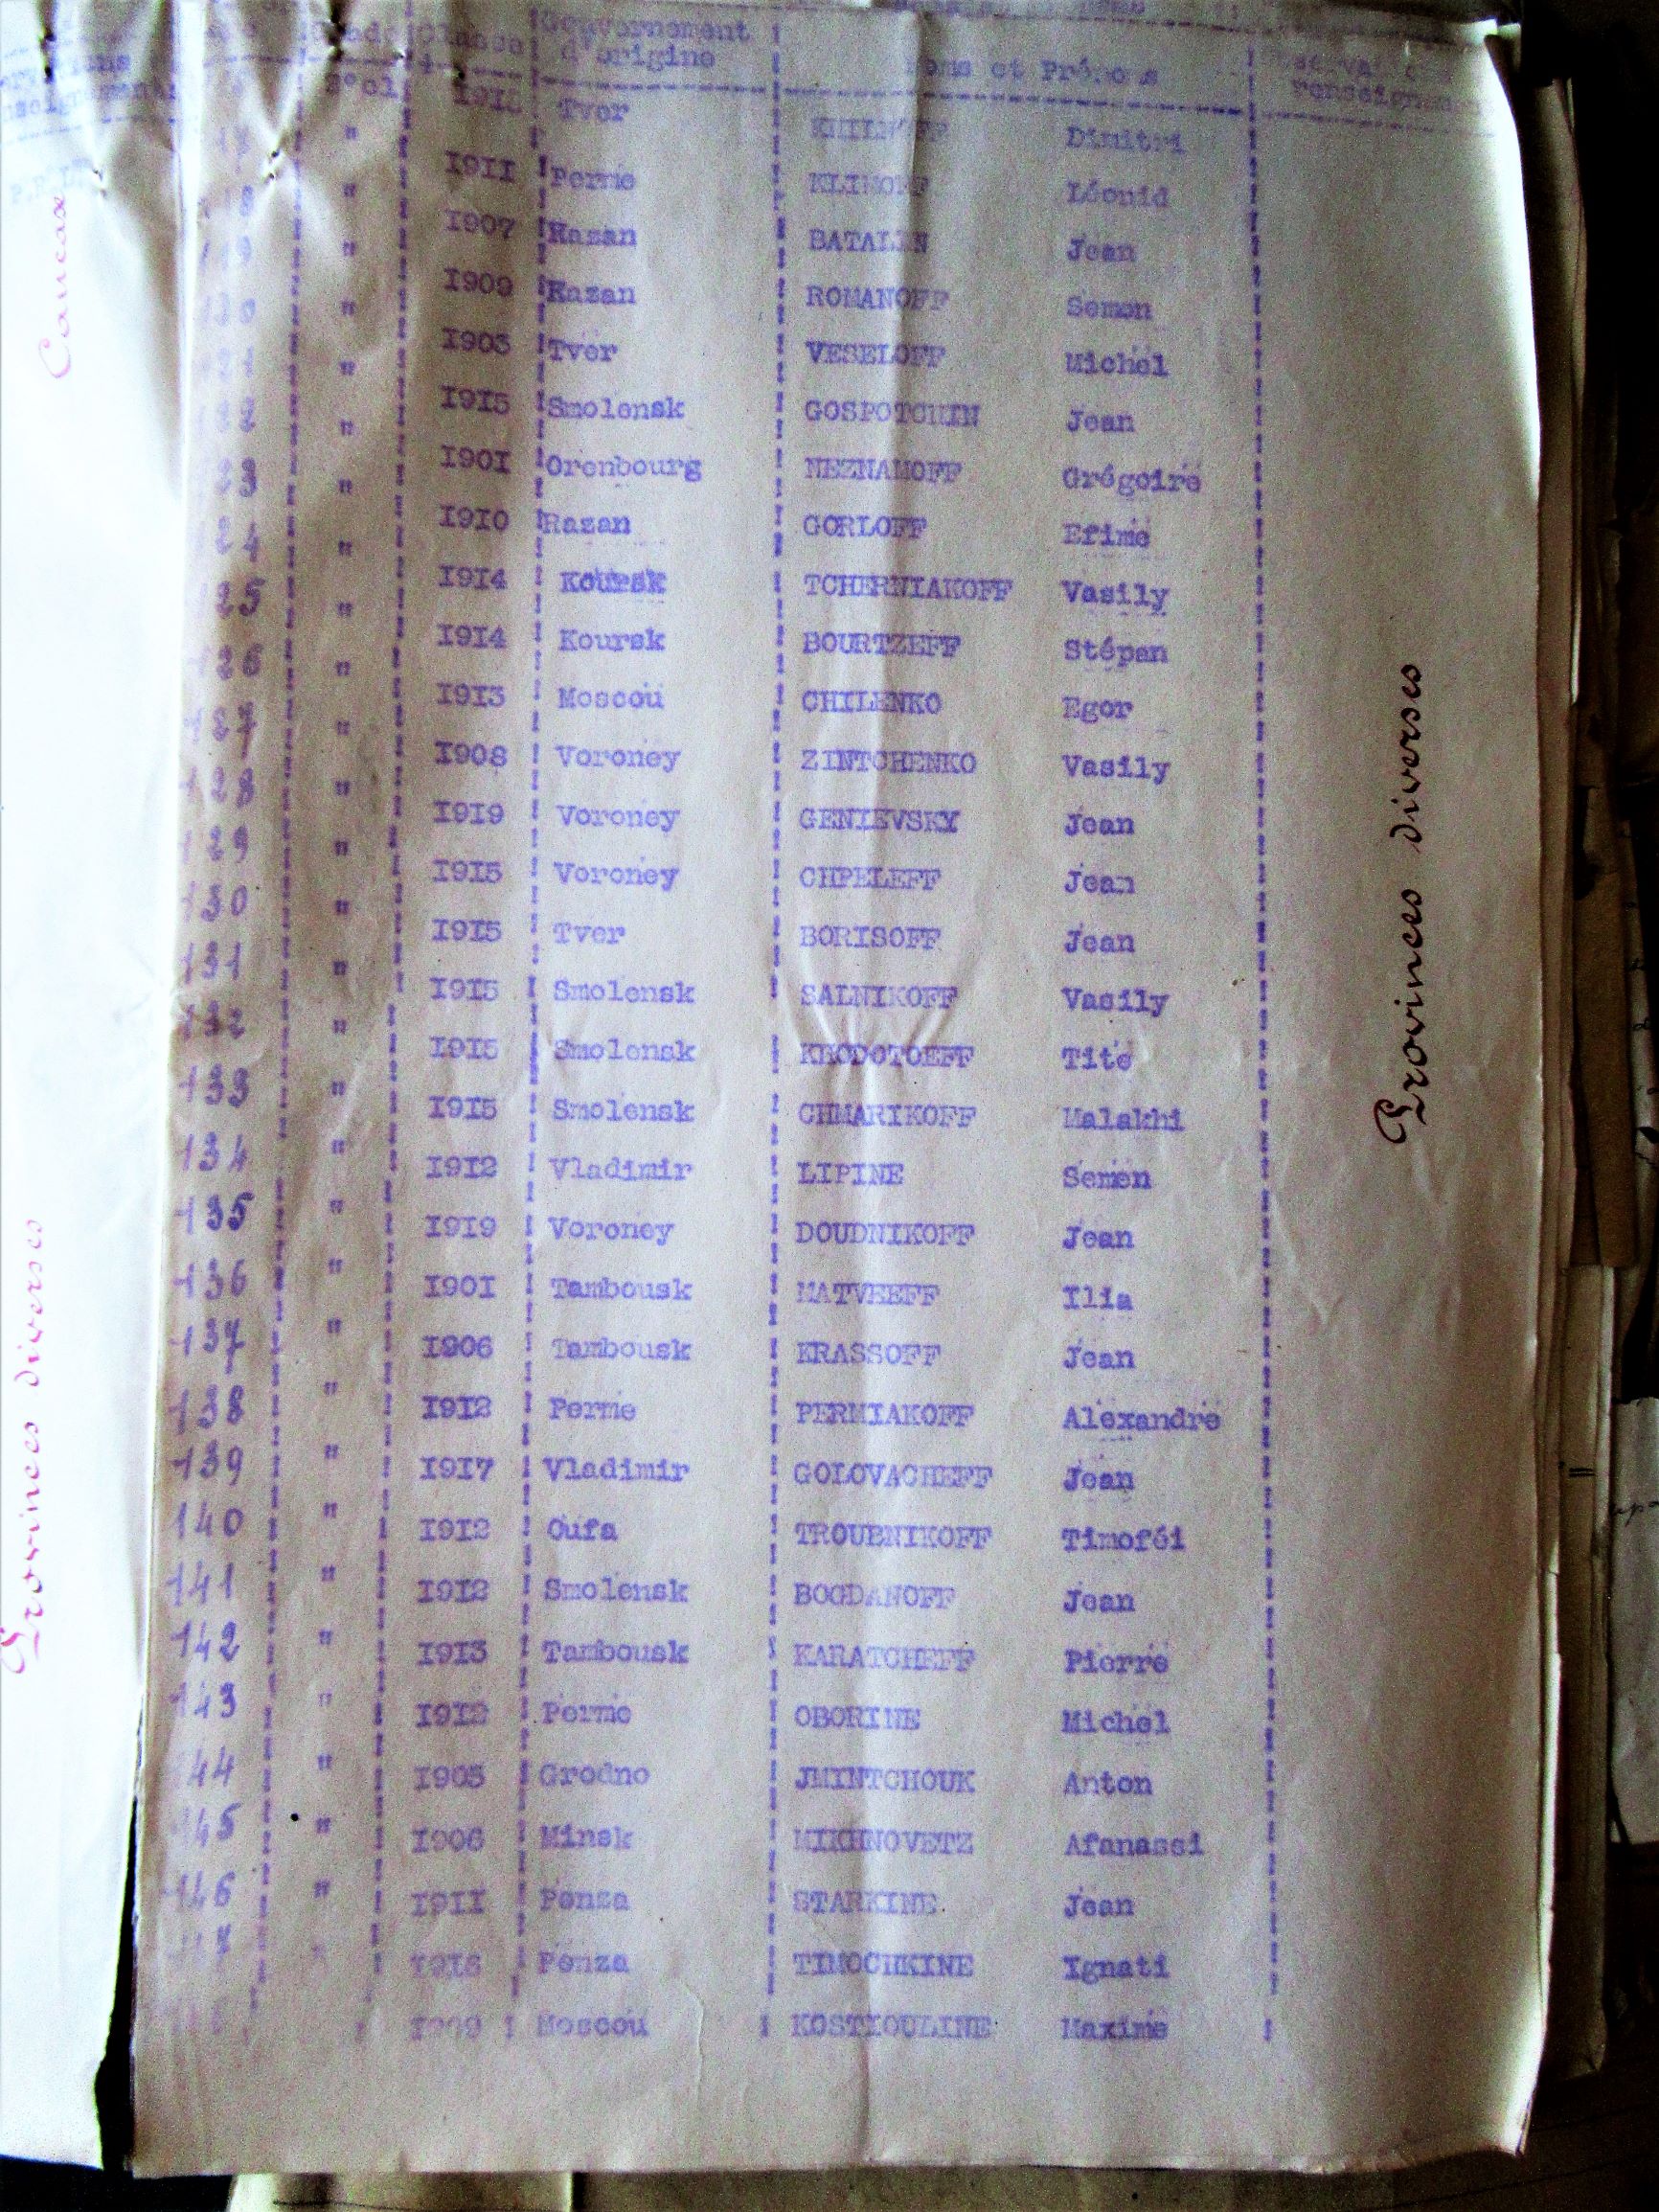 Gouvernement
d'origine
Noms et Prénoms
Classe
2°cl
Tver Dimitri
" 1911 Perme KLIMOFF Léonid
" 1907 Kazan BATALIN Jean
" 1909 Kazan ROMANOFF Semen
" 1903 Tver VESELOFF Michel
" 1915 Smolensk GOSPOTCHIN Jean
" 1901 Orenbourg NEZNAMOFF Grégoire
124 " 1910 Razan GORLOFF Efime
125 " 1914 Koursk TCHERNIAKOFF Vasily
126 " 1914 Koursk BOURTZEFF Stépan
127 " 1913 Moscou CHILENKO Egor
128 " 1908 Voroney ZINTCHENKO Vasily
129 " 1919 Voroney GENIEVSKY Jean
130 " 1915 Voroney CHPELEFF Jean
131 " 1915 Tver BORISOFF Jean
132 " 1915 Smolensk SALNIKOFF Vasily
133 " 1915 Smolensk KHODOTOEFF Tite
134 " 1915 Smolensk CHMARIKOFF Malakhi
135 " 1912 Vladimir LIPINE Semen
136 " 1919 Voroney DOUDNIKOFF Jean
137 " 1901 Tambousk MATVEEFF Ilia
138 " 1906 Tambousk KRASSOFF Jean
139 " 1912 Perme PERMIAKOFF Alexandre
140 " 1917 Vladimir GOLOVACHEFF Jean
141 " 1912 Oufa TROUBNIKOFF Timoféi
142 " 1912 Smolensk BOGDANOFF Jean
143 " 1913 Tambousk KARATCHEFF Pierre
144 " 1912 Perme OBORINE Michel
145 " 1905 Grodno JMINTCHOUK Anton
146 " 1906 Minsk MIKHNOVETZ Afanassi
1911 Penza STARKINE Jean
Penza TIMOCHKINE Ignati
1909 Moscou KOSTIOULINE Maxime
Provinces diverses
Caucase
Provinces diverses